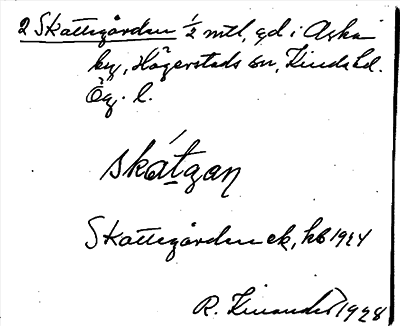 2 Skattegården 1/2 mtl, gd i Aska
by, Hägerstads sn, Kinds hd.
Ög. l.
skátgan
Skattegården ek, kb 1924
R. Kinander 1928